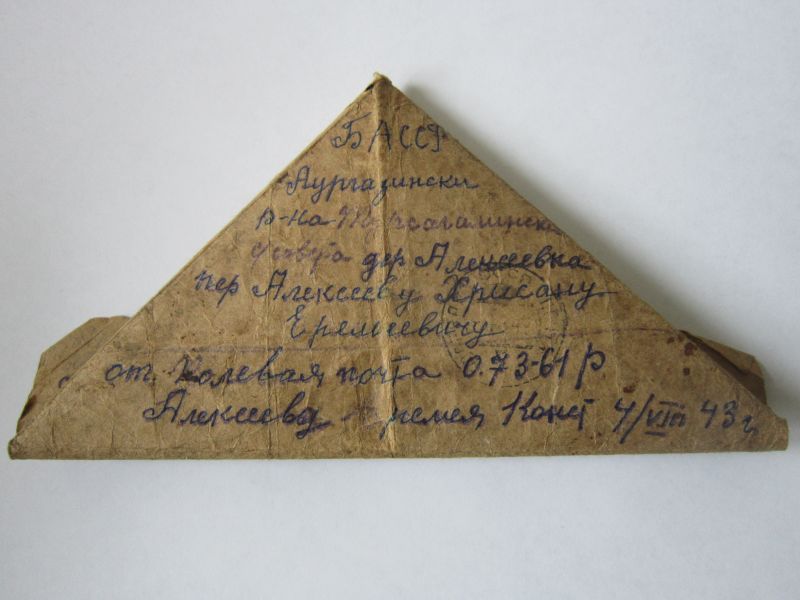 БАССР
Аургазински
р-на
дер Алексеевка
пер Алексееву Хрисану
Еремеевичу
от. Полевая почта 0.73-61 Р
Алексеева Еремея Конст 4/VIII 43 г.